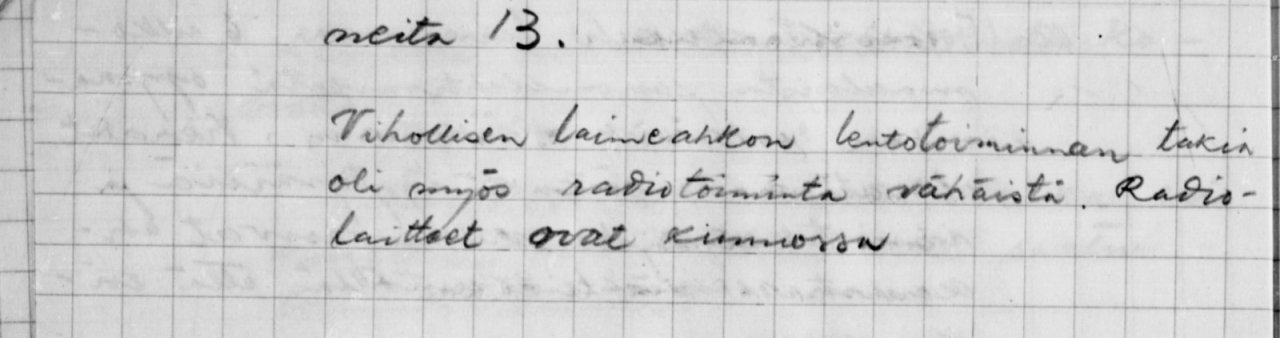 neita 13.
Vihollisen laimeahkon lentotoiminnan takia
oli myös radiotoiminta vähäistä. Radio-
laitteet ovat kunnossa